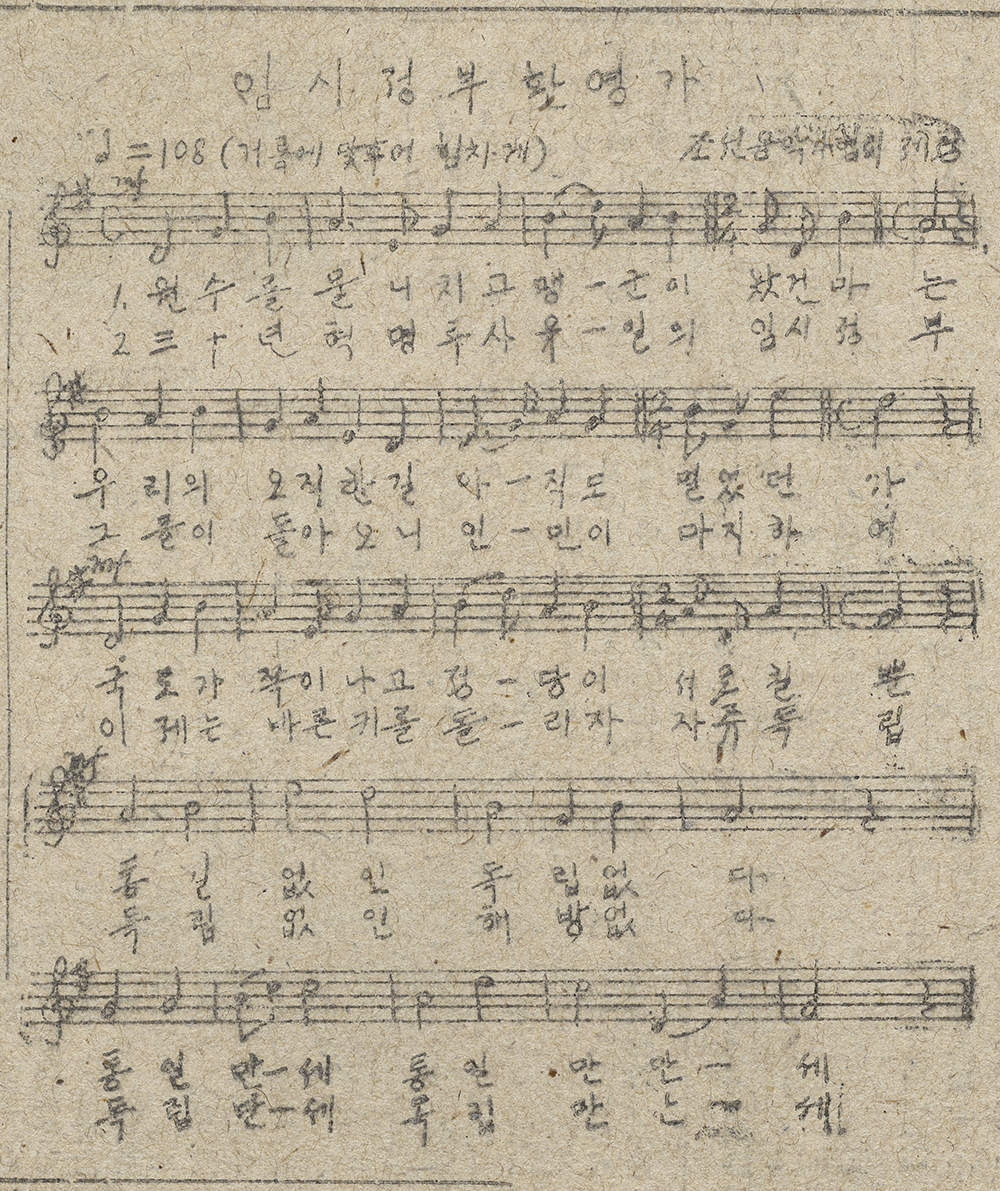 임시정부환영가
♩=108 (거름에 맞추어 힘차게) 조선음악가협회 제공
mf
1. 원수를 물니치고 맹-군이 왔건마는
2 三十년 혁명투사 유-일의 임시정부
우리의 오직한길 아-직도 멀었던가
그들이 돌아오니 인-민이 마지하여
mf
국토가 짝이나고 정-당이 서로갈뿐
이제는 바른키를 돌-리자 자쥬독립
mf
통일없인 독립없다
독립없인 해방없다
통일만-세 통일만만-세
독립만-세 독립만 세!